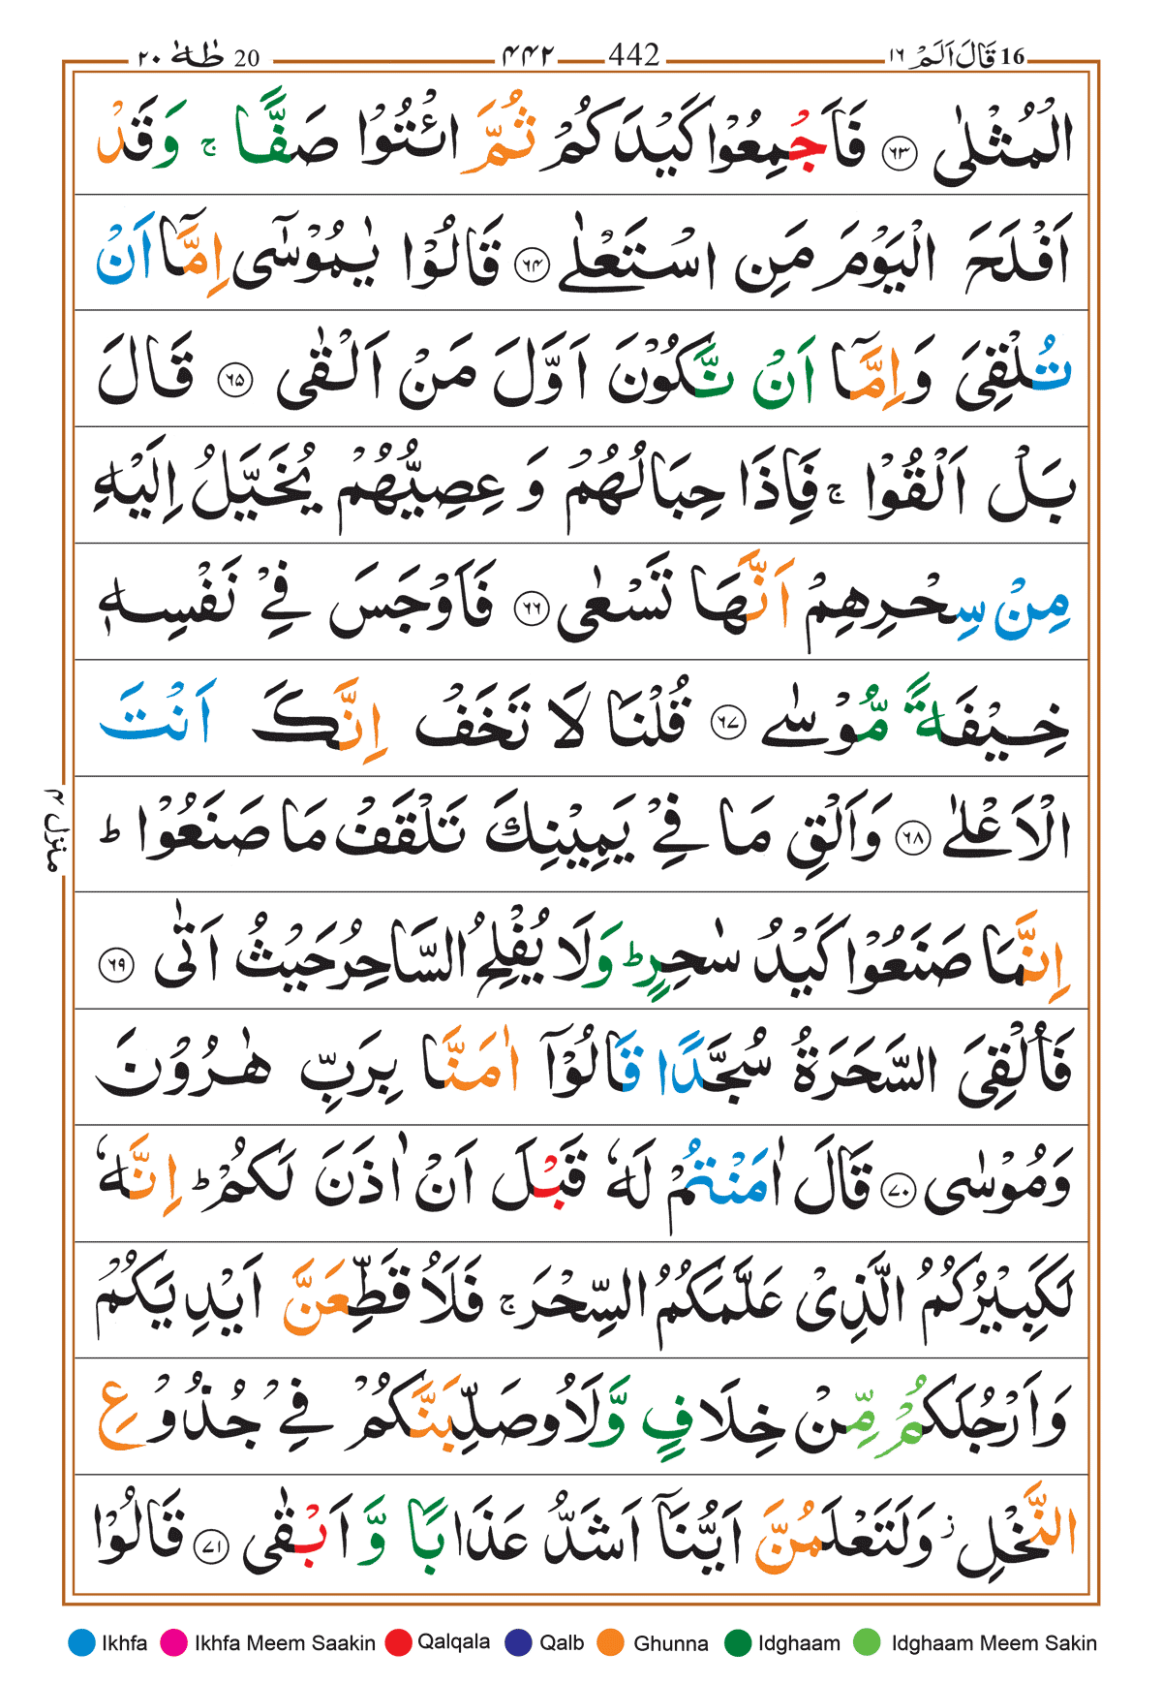 16 قَالَ اَلَمْ ١٦ 442 ۴۴۲ 20 طٰهٰ ٢٠
الْمُثْلٰى ﴿۶۳﴾ فَاَجْمِعُوْا كَيْدَكُمْ ثُمَّ ائْتُوْا صَفًّا ۚ وَقَدْ
اَفْلَحَ الْيَوْمَ مَنِ اسْتَعْلٰى ﴿۶۴﴾ قَالُوْا يٰمُوْسٰٓى اِمَّاۤ اَنْ
تُلْقِىَ وَاِمَّاۤ اَنْ نَّكُوْنَ اَوَّلَ مَنْ اَلْقٰى ﴿۶۵﴾ قَالَ
بَلْ اَلْقُوْا ۚ فَاِذَا حِبَالُهُمْ وَ عِصِيُّهُمْ يُخَيَّلُ اِلَيْهِ
مِنْ سِحْرِهِمْ اَنَّهَا تَسْعٰى ﴿۶۶﴾ فَاَوْجَسَ فِىْ نَفْسِهٖ
خِيْفَةً مُّوْسٰى ﴿۶۷﴾ قُلْنَا لَا تَخَفْ اِنَّكَ اَنْتَ
الْاَعْلٰى ﴿۶۸﴾ وَاَلْقِ مَا فِىْ يَمِيْنِكَ تَلْقَفْ مَا صَنَعُوْا ؕ
اِنَّمَا صَنَعُوْا كَيْدُ سٰحِرٍ ؕ وَلَا يُفْلِحُ السَّاحِرُ حَيْثُ اَتٰى ﴿۶۹﴾
فَاُلْقِىَ السَّحَرَةُ سُجَّدًا قَالُوْۤا اٰمَنَّا بِرَبِّ هٰرُوْنَ
وَمُوْسٰى ﴿۷۰﴾ قَالَ اٰمَنْتُمْ لَهٗ قَبْلَ اَنْ اٰذَنَ لَكُمْ ؕ اِنَّهٗ
لَكَبِيْرُكُمُ الَّذِىْ عَلَّمَكُمُ السِّحْرَ ۚ فَلَاُقَطِّعَنَّ اَيْدِيَكُمْ
وَاَرْجُلَكُمْ مِّنْ خِلَافٍ وَّلَاُوصَلِّبَنَّكُمْ فِىْ جُذُوْعِ
النَّخْلِ ۫ وَلَتَعْلَمُنَّ اَيُّنَاۤ اَشَدُّ عَذَابًا وَّ اَبْقٰى ﴿۷۱﴾ قَالُوْا
منزل ۴
Ikhfa Ikhfa Meem Saakin Qalqala Qalb Ghunna Idghaam Idghaam Meem Sakin